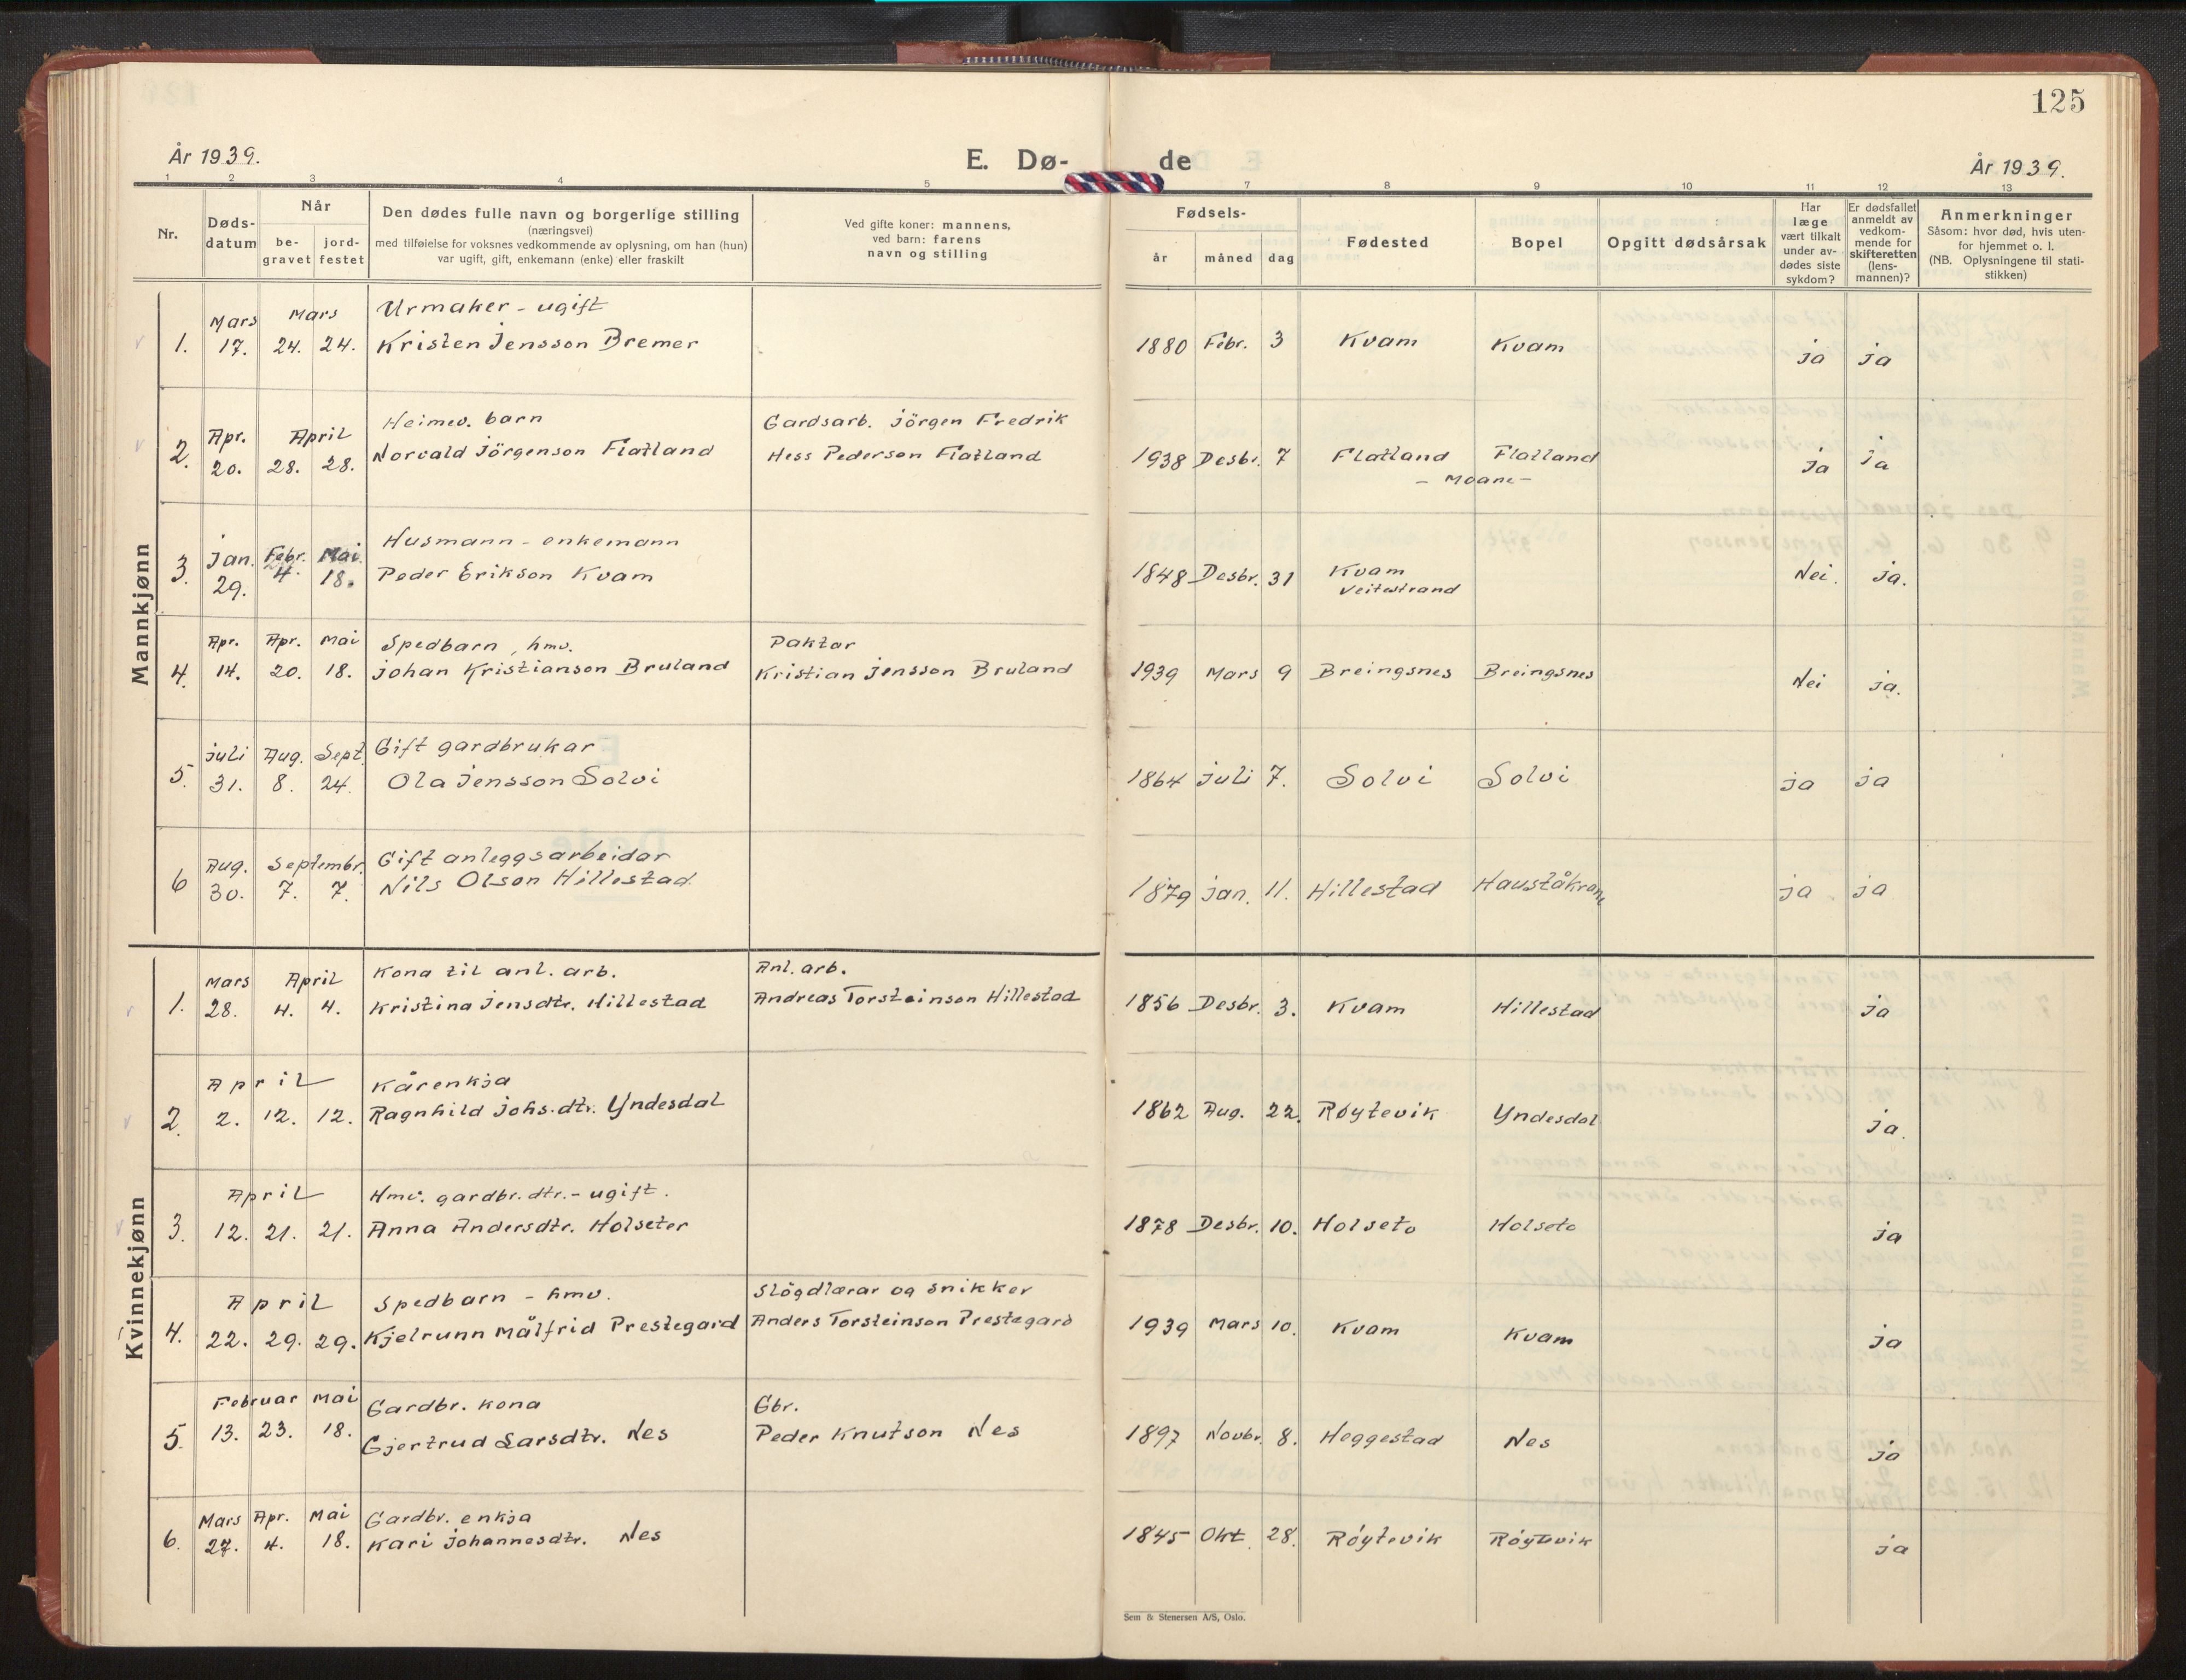 125
År 1939.
E. Dø-
de
År 1939.
1 2 3 4 5 7 8 9 10 11 12 13
Nr.
Døds-
datum
Når
be-
gravet
jord-
festet
Den dødes fulle navn og borgerlige stilling
(næringsvei)
med tilføielse for voksnes vedkommende av oplysning, om han (hun)
var ugift, gift, enkemann (enke) eller fraskilt
Ved gifte koner: mannens,
ved barn: farens
navn og stilling
Fødsels-
år måned dag
Fødested
Bopel
Opgitt dødsårsak
Har
læge
vært tilkalt
under av-
dødes siste
sykdom?
Er dødsfallet
anmeldt av
vedkom-
mende for
skifteretten
(lens-
mannen)?
Anmerkninger
Såsom: hvor død, hvis uten-
for hjemmet o. l.
(NB. Oplysningene til stati-
stikken)
Mannkjønn
Mars Mars Urmaker - ugift
1. 17. 24. 24. Kristen Jensson Bremer 1880 Febr. 3 Kvam Kvam ja ja
Apr. April Heimev. barn Gardsarb. Jörgen Fredrik
2. 20. 28. 28. Norvald Jörgenson Flatland Hess Pederson Flatland 1938 Desbr. 7 Flatland Flatland ja ja
- Moane -
Jan. Febr. Mai Husmann - enkemann
3. 29. 4. 18. Peder Erikson Kvam 1848 Desbr. 31 Kvam Nei. ja.
Veitestrand
Apr. Apr. Mai Spedbarn, hmv. Paktar
4. 14. 20. 18. Johan Kristianson Bruland Kristian Jensson Bruland 1939 Mars 9 Breingsnes Breingsnes Nei ja.
Juli Aug. Sept. Gift gardbrukar
5. 31. 8. 24. Ola Jensson Solvi 1864 Juli 7. Solvi Solvi ja ja
Aug. Septembr. Gift anleggsarbeidar
6 30. 7. 7. Nils Olson Hillestad 1879 Jan. 11. Hillestad Hauståkrane ja ja
Kvinnekjønn
Mars April Kona til anl. arb. Anl. arb.
1. 28. 4. 4. Kristina Jensdtr. Hillestad Andreas Torsteinson Hillestad 1856 Desbr. 3. Kvam Hillestad ja
April Kårenkja
2. 2. 12. 12. Ragnhild Johs.dtr. Yndesdal 1862 Aug. 22. Röytevik Yndesdal ja.
April Hmv. gardbr. dtr. - ugift.
3. 12. 21. 21. Anna Andersdtr. Holseter 1878 Desbr. 10. Holseto Holseto ja
April Spedbarn - hmv. Slögdlærar og snikker
4. 22. 29. 29. Kjelrunn Målfrid Prestegard Anders Torsteinson Prestegard 1939 Mars 10. Kvam Kvam ja
Februar Mai Gardbr. kona Gbr.
5. 13. 23. 18. Gjertrud Larsdtr. Nes Peder Knutson Nes 1897 Novbr. 8. Heggestad Nes ja
Mars Apr. Mai Gardbr. enkja
6. 27. 4. 18. Kari Johannesdtr. Nes 1845 Okt. 28. Röytevik Röytevik ja
Sem & Stenersen A/S, Oslo.